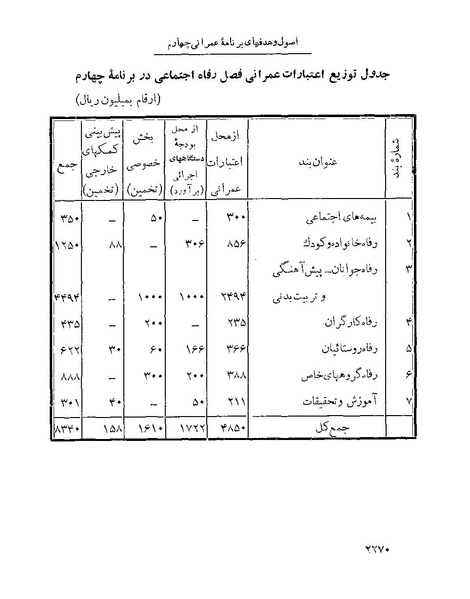 اصول و هدفهای برنامهٔ عمرانی چهارم
جدول توزیع اعتبارات عمرانی فصل رفاه اجتماعی در برنامهٔ چهارم
(ارقام بمیلیون ریال)
شمارهٔ بند | عنوان بند | از محل اعتبارات عمرانی | از محل بودجهٔ دستگاههای اجرائی (برآورد) | بخش خصوصی (تخمین) | پیش‌بینی کمکهای خارجی (تخمین) | جمع
۱ بیمه‌های اجتماعی ۳۰۰ – ۵۰ – ۳۵۰
۲ رفاه خانواده و کودک ۸۵۶ ۳۰۶ – ۸۸ ۱۲۵۰
۳ رفاه جوانان – پیش‌آهنگی
و تربیت بدنی ۲۴۹۴ ۱۰۰۰ ۱۰۰۰ – ۴۴۹۴
۴ رفاه کارگران ۲۳۵ – ۲۰۰ – ۴۳۵
۵ رفاه روستائیان ۳۶۶ ۱۶۶ ۶۰ ۳۰ ۶۲۲
۶ رفاه گروههای خاص ۳۸۸ ۲۰۰ ۳۰۰ – ۸۸۸
۷ آموزش و تحقیقات ۲۱۱ ۵۰ – ۴۰ ۳۰۱
جمع کل ۴۸۵۰ ۱۷۲۲ ۱۶۱۰ ۱۵۸ ۸۳۴۰
۲۲۷۰